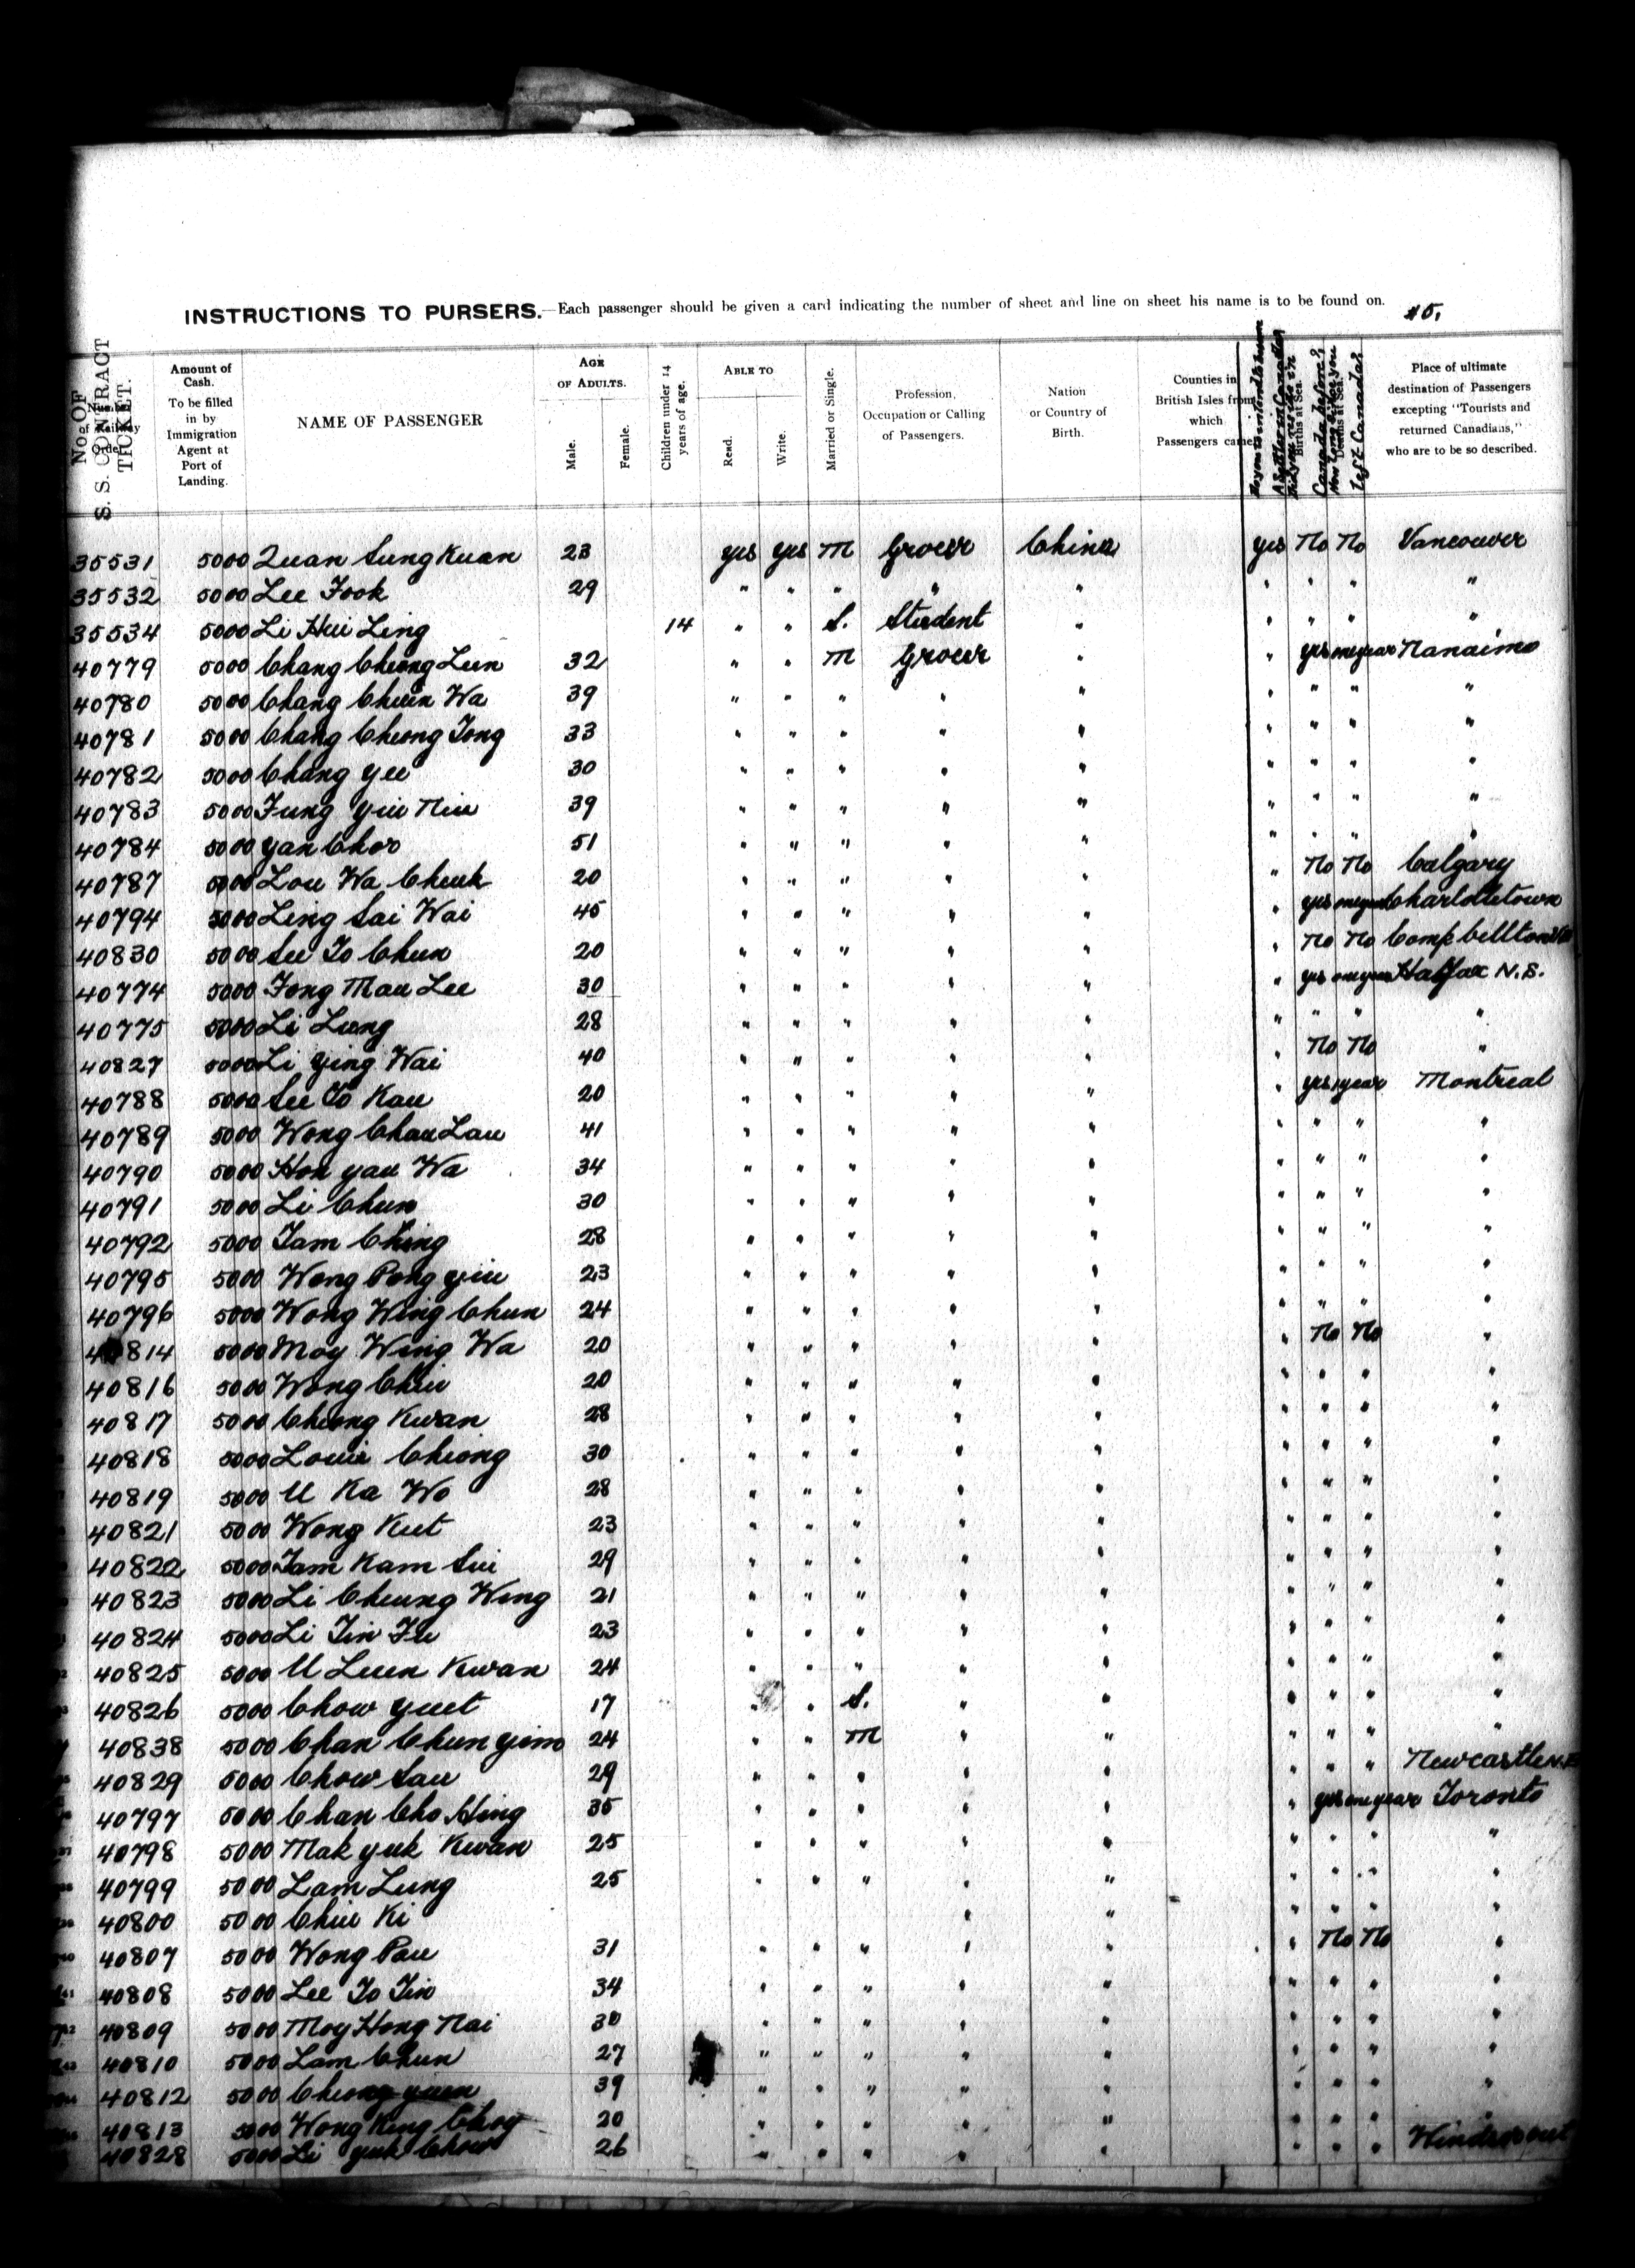 INSTRUCTIONS TO PURSERS.—Each passenger should be given a card indicating the number of sheet and line on sheet his name is to be found on. #5.
No. OF S. S. CONTRACT TICKET. Number of Railway Order
Amount of Cash. To be filled in by Immigration Agent at Port of Landing.
NAME OF PASSENGER
AGE OF ADULTS. Male. Female.
Children under 14 years of age.
ABLE TO Read. Write.
Married or Single.
Profession, Occupation or Calling of Passengers.
Nation or Country of Birth.
Counties in British Isles from which Passengers came.
Births at Sea. Canada before? How long since you Deaths at Sea. Left Canada?
Place of ultimate destination of Passengers excepting "Tourists and returned Canadians," who are to be so described.
35531 5000 Quan Sung Kuan 23 yes yes M Grocer China yes No No Vancouver
35532 5000 Lee Fook 29 " " " " " " " " "
35534 5000 Li Hui Ling 14 " " S. Student " " " " "
40779 5000 Chang Cheong Lun 32 " " M Grocer " " yes one year Nanaimo
40780 5000 Chang Chuen Wa 39 " " " " " " " " "
40781 5000 Chang Cheong Tong 33 " " " " " " " " "
40782 5000 Chang Yee 30 " " " " " " " " "
40783 5000 Fung Yiu Niu 39 " " " " " " " " "
40784 5000 Yan Chor 51 " " " " " " " " "
40787 5000 Lou Wa Cheuk 20 " " " " " " No No Calgary
40794 5000 Ling Sai Wai 45 " " " " " " yes one year Charlottetown
40830 5000 See To Chun 20 " " " " " " No No Campbellton
40774 5000 Fong Mau Lee 30 " " " " " " yes one year Halifax N.S.
40775 5000 Li Lung 28 " " " " " " " " "
40827 5000 Li Ying Wai 40 " " " " " " No No "
40788 5000 See To Kau 20 " " " " " " yes 1 year Montreal
40789 5000 Wong Chau Lau 41 " " " " " " " " "
40790 5000 Hon Yau Wa 34 " " " " " " " " "
40791 5000 Li Chun 30 " " " " " " " " "
40792 5000 Tam Ching 28 " " " " " " " " "
40795 5000 Wong Pong Yiu 23 " " " " " " " " "
40796 5000 Wong Wing Chun 24 " " " " " " " " "
40814 5000 Moy Wing Wa 20 " " " " " " No No "
40816 5000 Wong Chiu 20 " " " " " " " " "
40817 5000 Cheong Kwan 28 " " " " " " " " "
40818 5000 Louie Cheong 30 " " " " " " " " "
40819 5000 U Ka Wo 28 " " " " " " " " "
40821 5000 Wong Kut 23 " " " " " " " " "
40822 5000 Tam Kam Sui 29 " " " " " " " " "
40823 5000 Li Cheung Wing 21 " " " " " " " " "
40824 5000 Li Tin Fu 23 " " " " " " " " "
40825 5000 U Luen Kwan 24 " " " " " " " " "
40826 5000 Chow Yuet 17 " " S. " " " " " "
40838 5000 Chan Chun Yim 24 " " M " " " " " "
40829 5000 Chow Sau 29 " " " " " " " " Newcastle
40797 5000 Chan Cho Hing 35 " " " " " " yes one year Toronto
40798 5000 Mak Yuk Kwan 25 " " " " " " " " "
40799 5000 Lam Lung 25 " " " " " " " " "
40800 5000 Chiu Ki " " " " " "
40807 5000 Wong Pau 31 " " " " " " No No "
40808 5000 Lee To Tin 34 " " " " " " " " "
40809 5000 Moy Hong Nai 30 " " " " " " " " "
40810 5000 Lam Chun 27 " " " " " " " " "
40812 5000 Cheong Yuen 39 " " " " " " " " "
40813 5000 Wong Kung Choy 20 " " " " " " " " "
40828 5000 Li Yuk Chow 26 " " " " " " " "